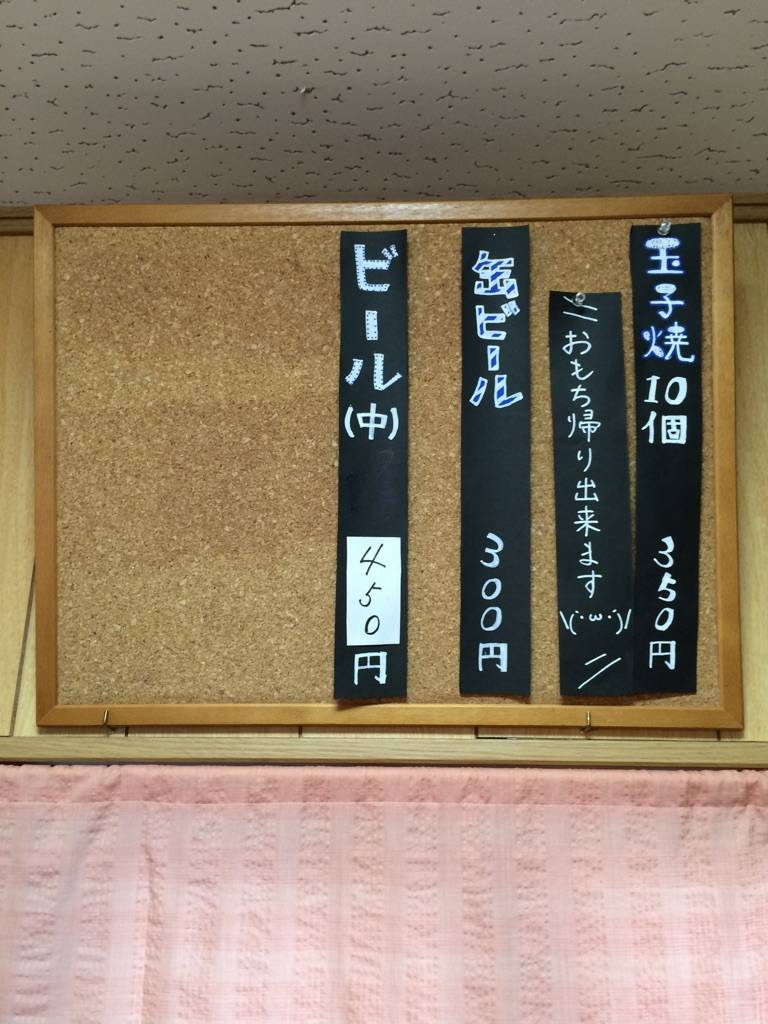 玉子焼10個 350円
〃おもち帰り出来ます\(・ω・)/〃
缶ビール 300円
ビール(中) 450円